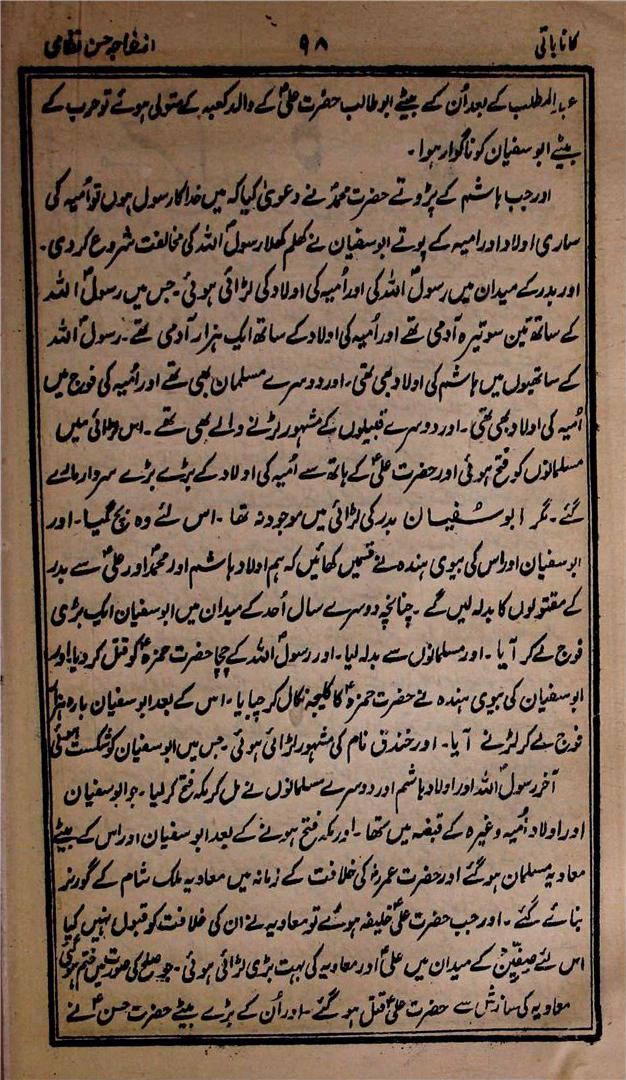 کانا باتی ۹۸ از خواجہ حسن نظامی
عبدالمطلب کے بعد اُن کے بیٹے ابو طالب حضرت علیؑ کے والد کعبہ کے متولی ہوئے تو حرب کے
بیٹے ابو سفیان کو ناگوار ہوا۔
اور جب ہاشم کے پڑوتے حضرت محمدؐ نے دعویٰ کیا کہ میں خدا کا رسول ہوں تو اُمیہ کی
ساری اولاد اور امیہ کے پوتے ابو سفیان نے کھلم کھلا رسولؐ اللہ کی مخالفت شروع کر دی۔
اور بدر کے میدان میں رسولؐ اللہ کی اور اُمیہ کی اولاد کی لڑائی ہوئی۔ جس میں رسولؐ اللہ
کے ساتھ تین سو تیرہ آدمی تھے اور اُمیہ کی اولاد کے ساتھ ایک ہزار آدمی تھے۔ رسولؐ اللہ
کے ساتھیوں میں ہاشم کی اولاد بھی تھی۔ اور دوسرے مسلمان بھی تھے اور امیہ کی فوج میں
اُمیہ کی اولاد بھی تھی۔ اور دوسرے قبیلوں کے مشہور لڑنے والے بھی تھے۔ اس لڑائی میں
مسلمانوں کو فتح ہوئی اور حضرت علیؑ کے ہاتھ سے اُمیہ کی اولاد کے بڑے بڑے سردار مارے
گئے۔ مگر ابو سفیان بدر کی لڑائی میں موجود نہ تھا۔ اس لئے وہ بچ گیا۔ اور
ابو سفیان اور اس کی بیوی ہندہ نے قسمیں کھائیں کہ ہم اولاد ہاشم اور محمدؐ اور علیؑ سے بدر
کے مقتولوں کا بدلہ لیں گے۔ چنانچہ دوسرے سال اُحد کے میدان میں ابو سفیان ایک بڑی
فوج لے کر آیا۔ اور مسلمانوں سے بدلہ لیا۔ اور رسولؐ اللہ کے چچا حضرت حمزہؑ کو قتل کر دیا۔ اور
ابو سفیان کی بیوی ہندہ نے حضرت حمزہؑ کا کلیجہ نکال کر چبایا۔ اس کے بعد ابو سفیان بارہ ہزار
فوج لے کر لڑنے آیا۔ اور خندق نام کی مشہور لڑائی ہوئی۔ جس میں ابو سفیان کو شکست ہوئی
آخر رسولؐ اللہ اور اولاد ہاشم اور دوسرے مسلمانوں نے مل کر مکہ فتح کر لیا۔ جو ابو سفیان
اور اولاد اُمیہ وغیرہ کے قبضہ میں تھا۔ اور مکہ فتح ہونے کے بعد ابو سفیان اور اس کے بیٹے
معاویہ مسلمان ہو گئے اور حضرت عمرؓ کی خلافت کے زمانہ میں معاویہ ملک شام کے گورنر
بنائے گئے۔ اور جب حضرت علیؑ خلیفہ ہوئے تو معاویہ نے ان کی خلافت کو قبول نہیں کیا
اس لئے صِفّین کے میدان میں علیؑ اور معاویہ کی بہت بڑی لڑائی ہوئی۔ جو صلح کی صورت میں ختم ہوئی
معاویہ کی سازش سے حضرت علیؑ قتل ہو گئے۔ اور اُن کے بڑے بیٹے حضرت حسنؑ نے